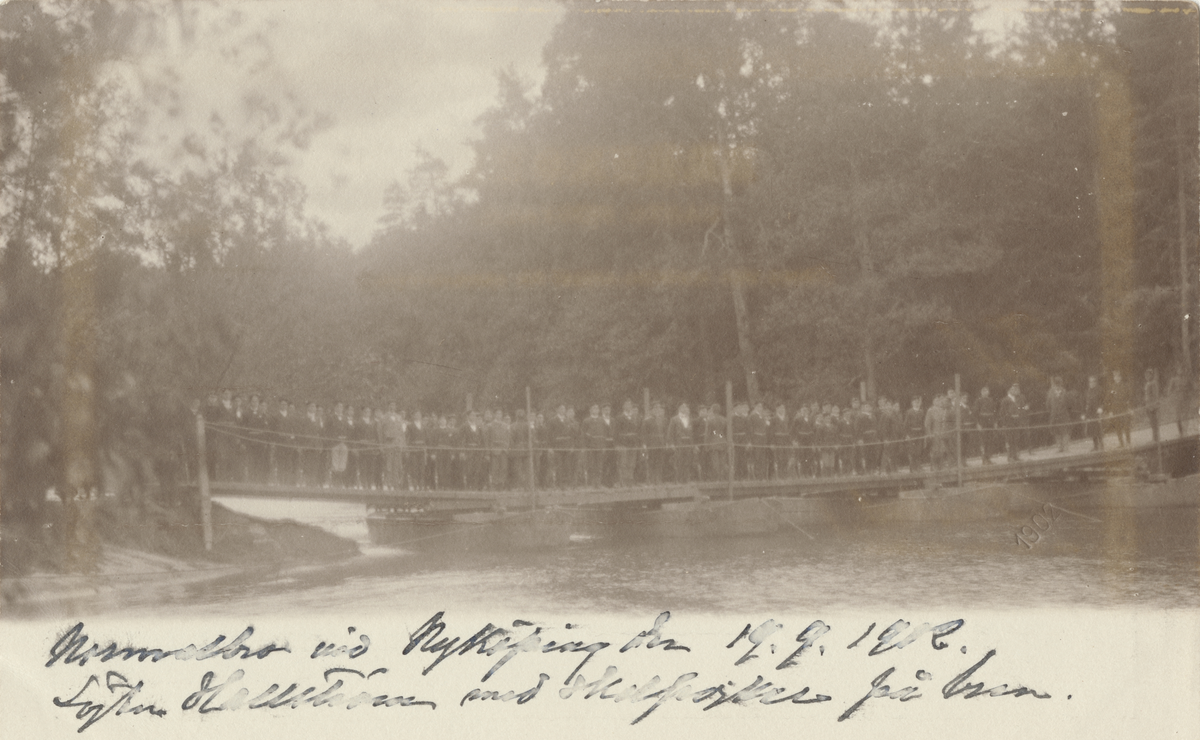 1902
Normalbro vid Nyköping den 19.9.1902.
Löjtn. Hallström med skolpojkar på bron.